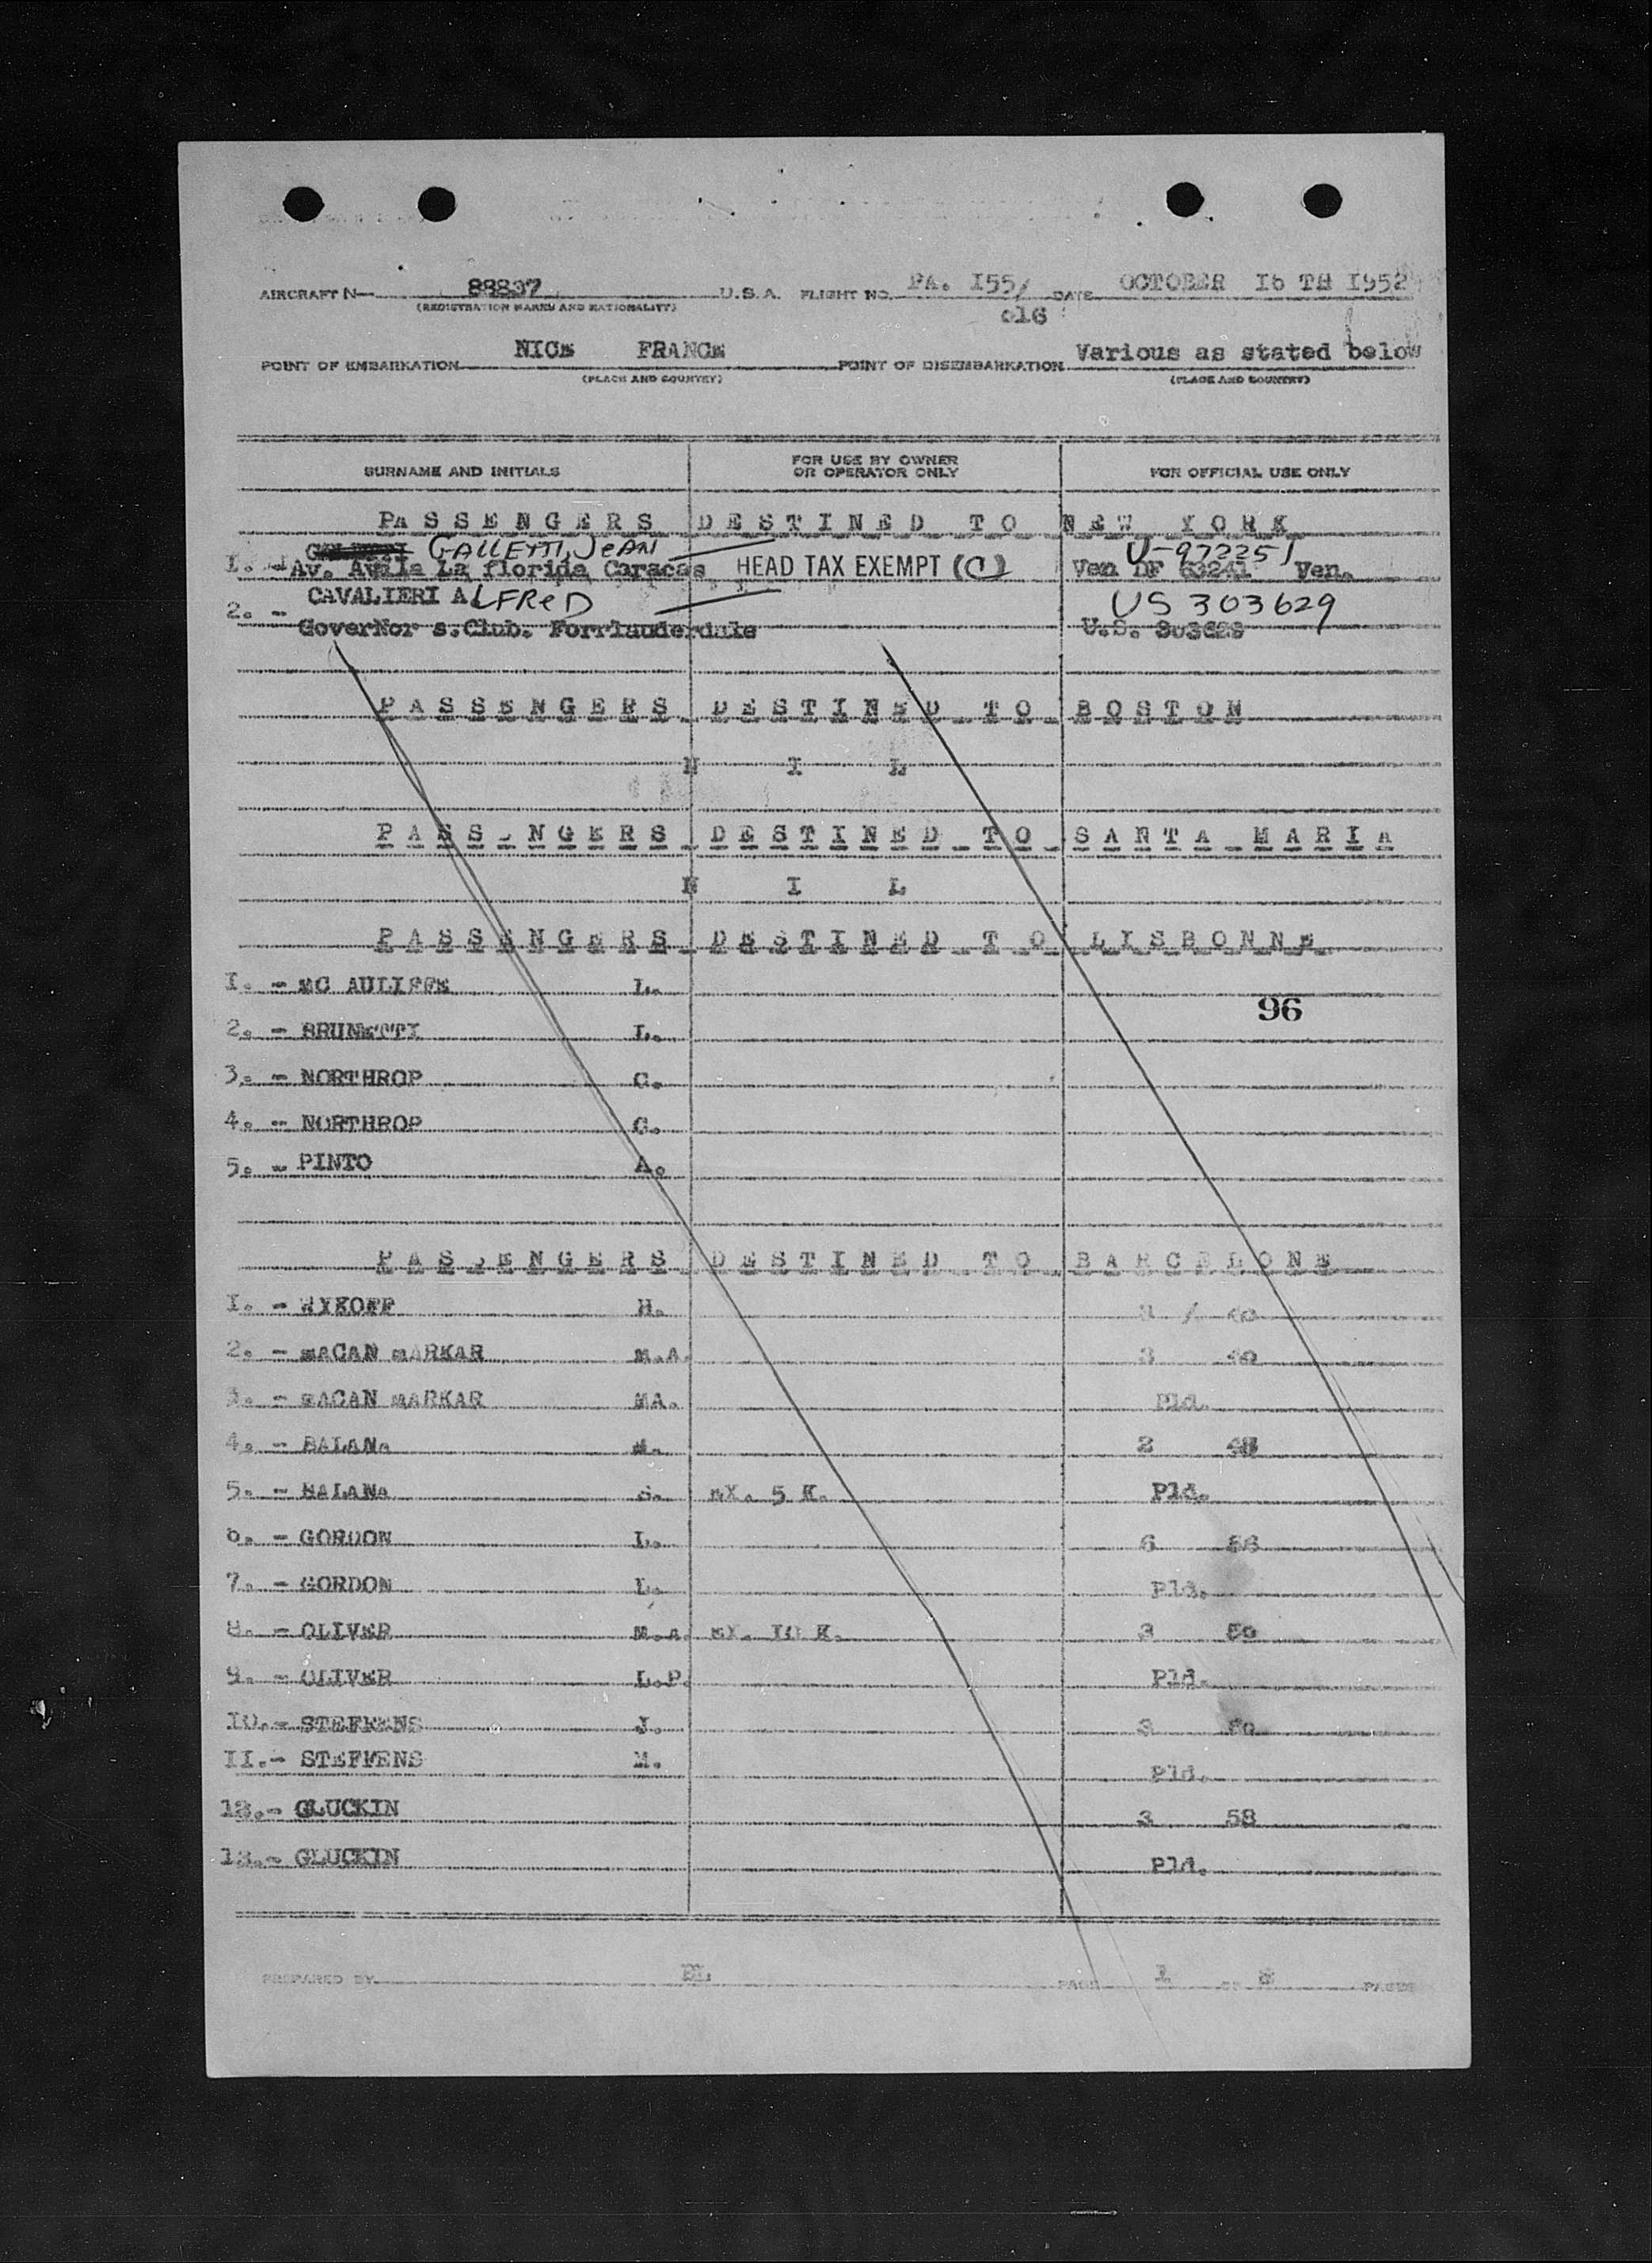 AIRCRAFT N— 88837 U.S.A. FLIGHT NO. PA. I55/ DATE OCTOBER I6 TH I952
(REGISTRATION MARKS AND NATIONALITY) 016
POINT OF EMBARKATION NICE FRANCE POINT OF DISEMBARKATION Various as stated below
(PLACE AND COUNTRY) (PLACE AND COUNTRY)
SURNAME AND INITIALS FOR USE BY OWNER OR OPERATOR ONLY FOR OFFICIAL USE ONLY
PASSENGERS DESTINED TO NEW YORK
GALLETTI, JEAN U-972251
I. - Av. Avila La florida Caracas HEAD TAX EXEMPT (C) Ven DF 63241 Ven.
CAVALIERI ALFReD US 303629
2. - GoverNor s.Club. Forrlauderdale U.S.
PASSENGERS DESTINED TO BOSTON
N I L
PASSENGERS DESTINED TO SANTA MARIA
N I L
PASSENGERS DESTINED TO LISBONNE
I. - MC AULIFFE L.
96
2. - BRUNETTI L.
3. - NORTHROP C.
4. - NORTHROP G.
5. - PINTO A.
PASSENGERS DESTINED TO BARCELONE
I. - WYKOFF H.
2. - MACAN MARKAR M.A. 3 40
3. - MACAN MARKAR MA. Pld.
4. - BALANA M. 2 48
5. - BALANA S. EX. 5 K. Pld.
6. - GORDON L. 6 86
7. - GORDON L. Pld.
8. - OLIVER M.A. EX. IO K. 3 50
9. - OLIVER L.P. Pld.
IO.- STEFFENS J. 3
II.- STEFFENS M. Pld.
12.- GLUCKIN 3 58
13.- GLUCKIN Pld.
PREPARED BY PAGE I OF PAGES